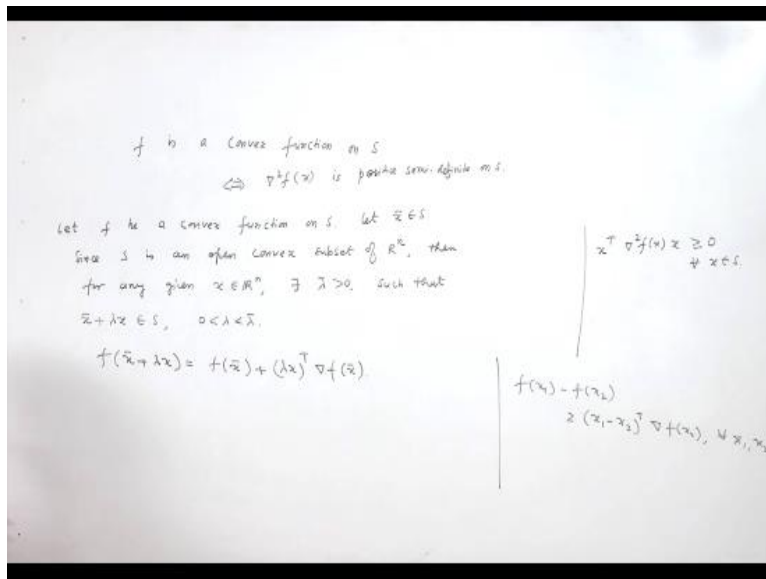 f is a convex function on S
⇔ ∇²f(x) is positive semi-definite on S.
Let f be a convex function on S. Let x̄ ∈ S
Since S is an open convex subset of Rⁿ, then
for any given x ∈ Rⁿ, ∃ λ̄ > 0, such that
x̄ + λx ∈ S, 0 < λ < λ̄.
f(x̄ + λx) = f(x̄) + (λx)ᵀ ∇f(x̄)
xᵀ ∇²f(x) x ≥ 0
∀ x ∈ S.
f(x₁) - f(x₂)
≥ (x₁ - x₂)ᵀ ∇f(x₂), ∀ x₁, x₂